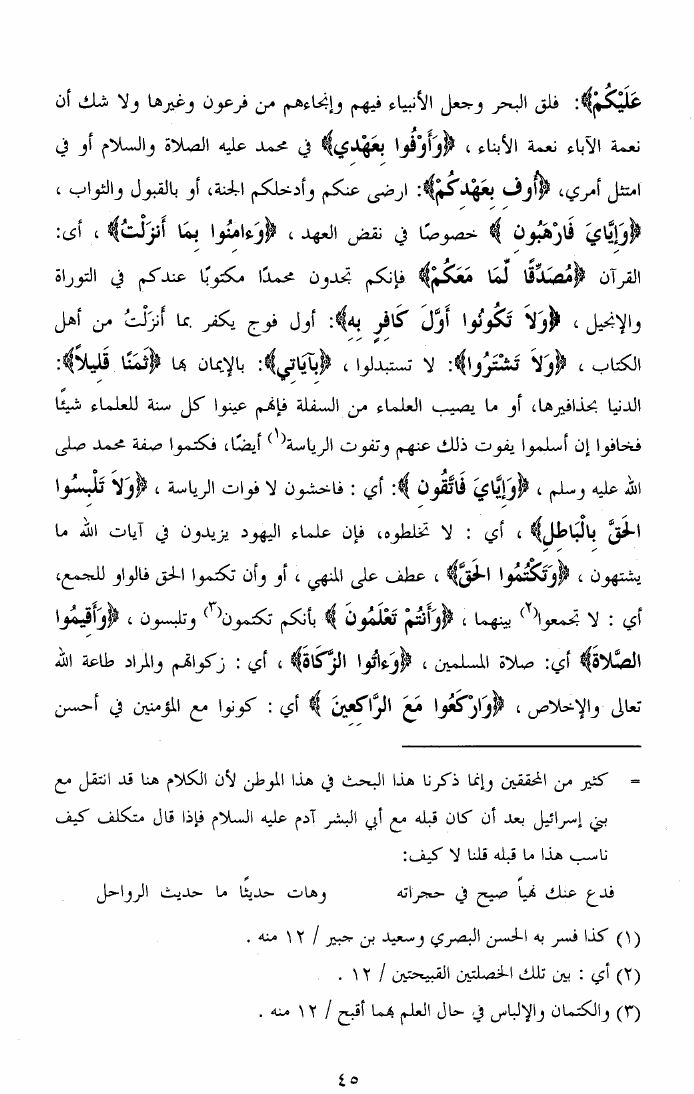 عَلَيْكُمْ﴾: فلق البحر وجعل الأنبياء فيهم وإنجاءهم من فرعون وغيرها ولا شك أن
نعمة الآباء نعمة الأبناء ، ﴿وَأَوْفُوا بِعَهْدِي﴾ في محمد عليه الصلاة والسلام أو في
امتثل أمري، ﴿أُوفِ بِعَهْدِكُمْ﴾: ارضى عنكم وأدخلكم الجنة، أو بالقبول والثواب ،
﴿وَإِيَّايَ فَارْهَبُونِ ﴾ خصوصًا في نقض العهد ، ﴿وَءامِنُوا بِمَا أَنزَلْتُ﴾ ، أى:
القرآن ﴿مُصَدِّقًا لِّمَا مَعَكُمْ﴾ فإنكم تجدون محمدًا مكتوبًا عندكم في التوراة
والإنجيل ، ﴿وَلاَ تَكُونُوا أَوَّلَ كَافِرٍ بِهِ﴾: أول فوج يكفر بما أَنزَلْتُ من أهل
الكتاب ، ﴿وَلاَ تَشْتَرُوا﴾: لا تستبدلوا ، ﴿بِآيَاتِي﴾: بالإيمان بها ﴿ثَمَنًا قَلِيلاً﴾:
الدنيا بحذافيرها، أو ما يصيب العلماء من السفلة فإنهم عينوا كل سنة للعلماء شيئًا
فخافوا إن أسلموا يفوت ذلك عنهم وتفوت الرياسة(١) أيضًا، فكتموا صفة محمد صلى
الله عليه وسلم ، ﴿وَإِيَّايَ فَاتَّقُونِ ﴾: أي : فاخشون لا فوات الرياسة ، ﴿وَلاَ تَلْبِسُوا
الحَقَّ بِالْبَاطِلِ﴾ ، أي : لا تخلطوه، فإن علماء اليهود يزيدون في آيات الله ما
يشتهون ، ﴿وَتَكْتُمُوا الحَقَّ﴾ ، عطف على المنهي ، أو وأن تكتموا الحق فالواو للجمع،
أي : لا تجمعوا(٢) بينهما ، ﴿وَأَنتُمْ تَعْلَمُونَ ﴾ بأنكم تكتمون(٣) وتلبسون ، ﴿وَأَقِيمُوا
الصَّلاةَ﴾ أي: صلاة المسلمين ، ﴿وَءاتُوا الزَّكَاةَ﴾ ، أي : زكواتهم والمراد طاعة الله
تعالى والإخلاص ، ﴿وَارْكَعُوا مَعَ الرَّاكِعِينَ ﴾ أي : كونوا مع المؤمنين في أحسن
= كثير من المحققين وإنما ذكرنا هذا البحث في هذا الموطن لأن الكلام هنا قد انتقل مع
بني إسرائيل بعد أن كان قبله مع أبي البشر آدم عليه السلام فإذا قال متكلف كيف
ناسب هذا ما قبله قلنا لا كيف:
فدع عنك نهياً صيح في حجراته وهات حديثًا ما حديث الرواحل
(١) كذا فسر به الحسن البصري وسعيد بن جبير / ١٢ منه .
(٢) أي : بين تلك الخصلتين القبيحتين / ١٢ .
(٣) والكتمان والإلباس في حال العلم بهما أقبح / ١٢ منه .
٤٥